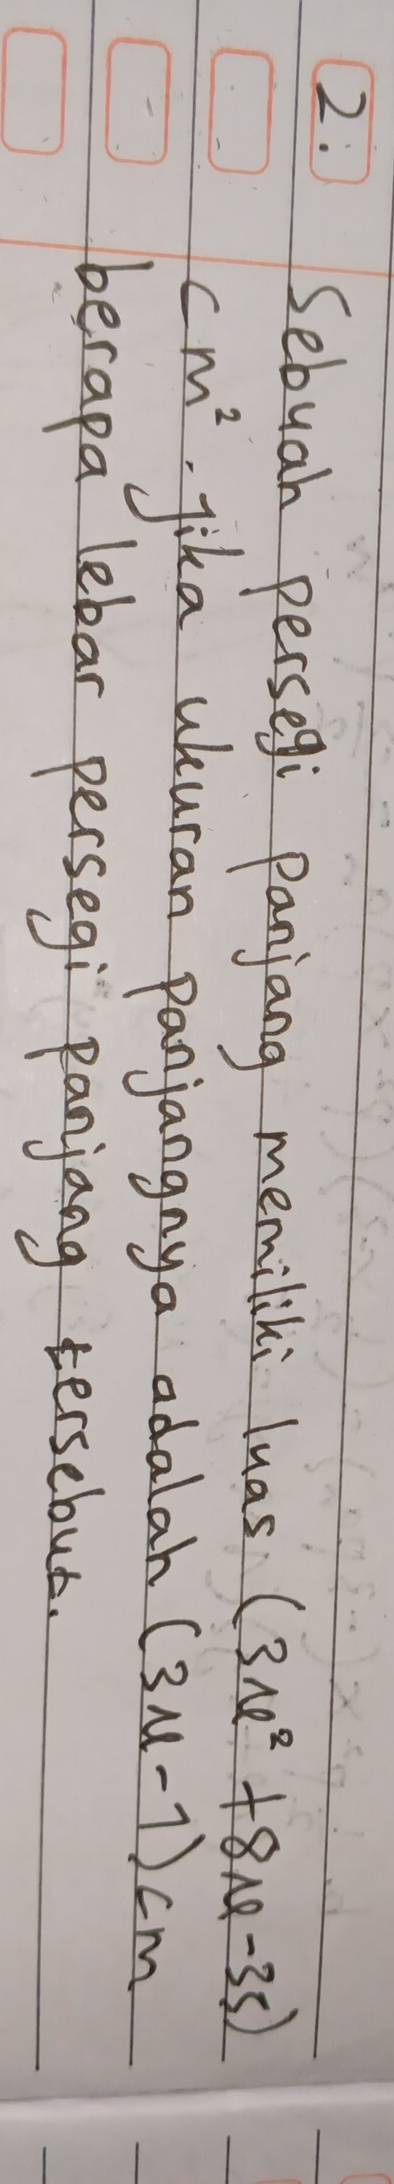 2. Sebuah persegi panjang memiliki luas (3x² + 8x - 35)
cm². Jika ukuran panjangnya adalah (3x - 7) cm
berapa lebar persegi panjang tersebut.